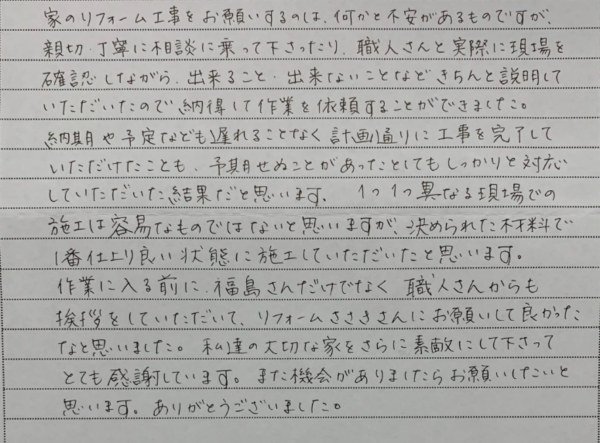 家のリフォーム工事をお願いするのは、何かと不安があるものですが、
親切・丁寧に相談に乗って下さったり、職人さんと実際に現場を
確認しながら、出来ること・出来ないことなどきちんと説明して
いただいたので納得して作業を依頼することができました。
納期や予定なども遅れることなく計画通りに工事を完了して
いただけたことも、予期せぬことがあったとしてもしっかりと対応
していただいた結果だと思います。 1つ1つ異なる現場での
施工は容易なものではないと思いますが、決められた材料で
1番仕上り良い状態に施工していただいたと思います。
作業に入る前に、福島さんだけでなく 職人さんからも
挨拶をしていただいて、リフォームささきさんにお願いして良かった
なと思いました。私達の大切な家をさらに素敵にして下さって
とても感謝しています。また機会がありましたらお願いしたいと
思います。ありがとうございました。